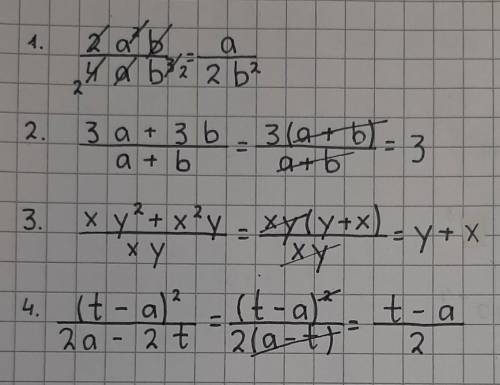 1. 2 a² b / 4 2 a b³ 2 = a / 2 b²
2. 3 a + 3 b / a + b = 3 (a + b) / a + b = 3
3. x y² + x² y / x y = x y (y + x) / x y = y + x
4. (t - a)² / 2a - 2 t = (t - a)² / 2 (a - t) = t - a / 2